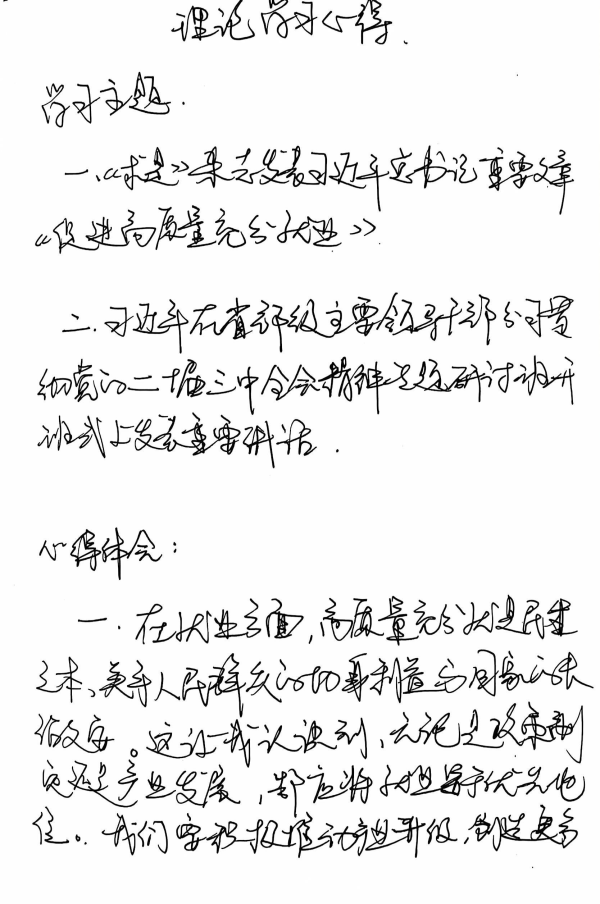 理论学习心得.
学习主题.
一、《求是》杂志发表习近平总书记重要文章
《促进高质量充分就业》
二.习近平在省部级主要领导干部学习贯
彻党的二十届三中全会精神专题研讨班开
班式上发表重要讲话.
心得体会:
一.在就业方面,高质量充分就业是民生
之本、关乎人民群众的切身利益与国家的长
治久安。这让我认识到,无论是政策制
定还是产业发展,都应将就业置于优先地
位。我们要积极推动产业升级,创造更多